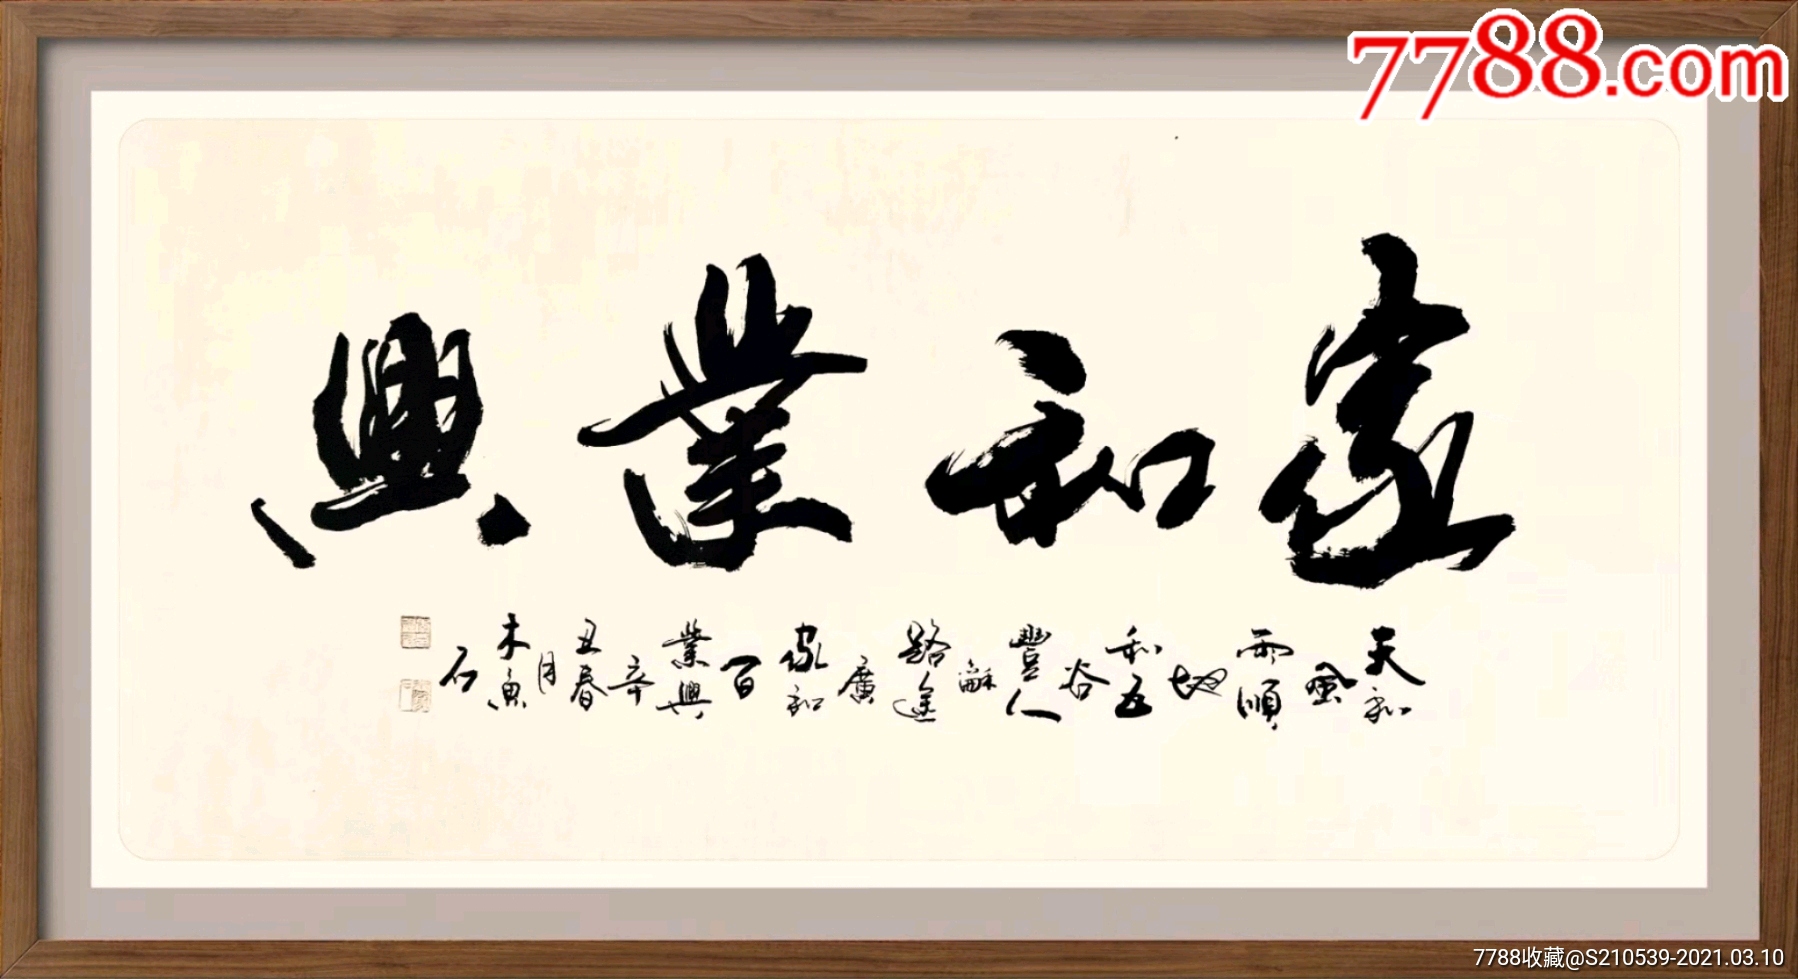 7788.com
家和業興
天和風雨順地和五谷豐人龢路途廣家和百業興辛丑春月木魚石
7788收藏@S210539-2021.03.10